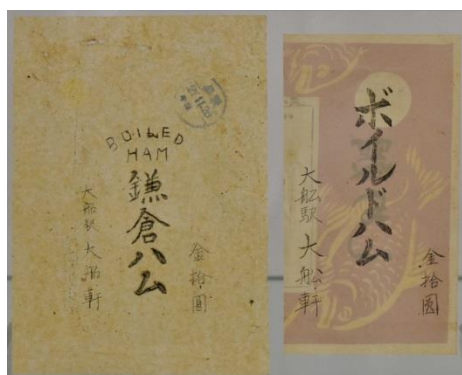 BOILED
HAM
鎌倉ハム
大船駅 大船軒
金拾圓
ボイルドハム
大船駅 大船軒
金拾圓